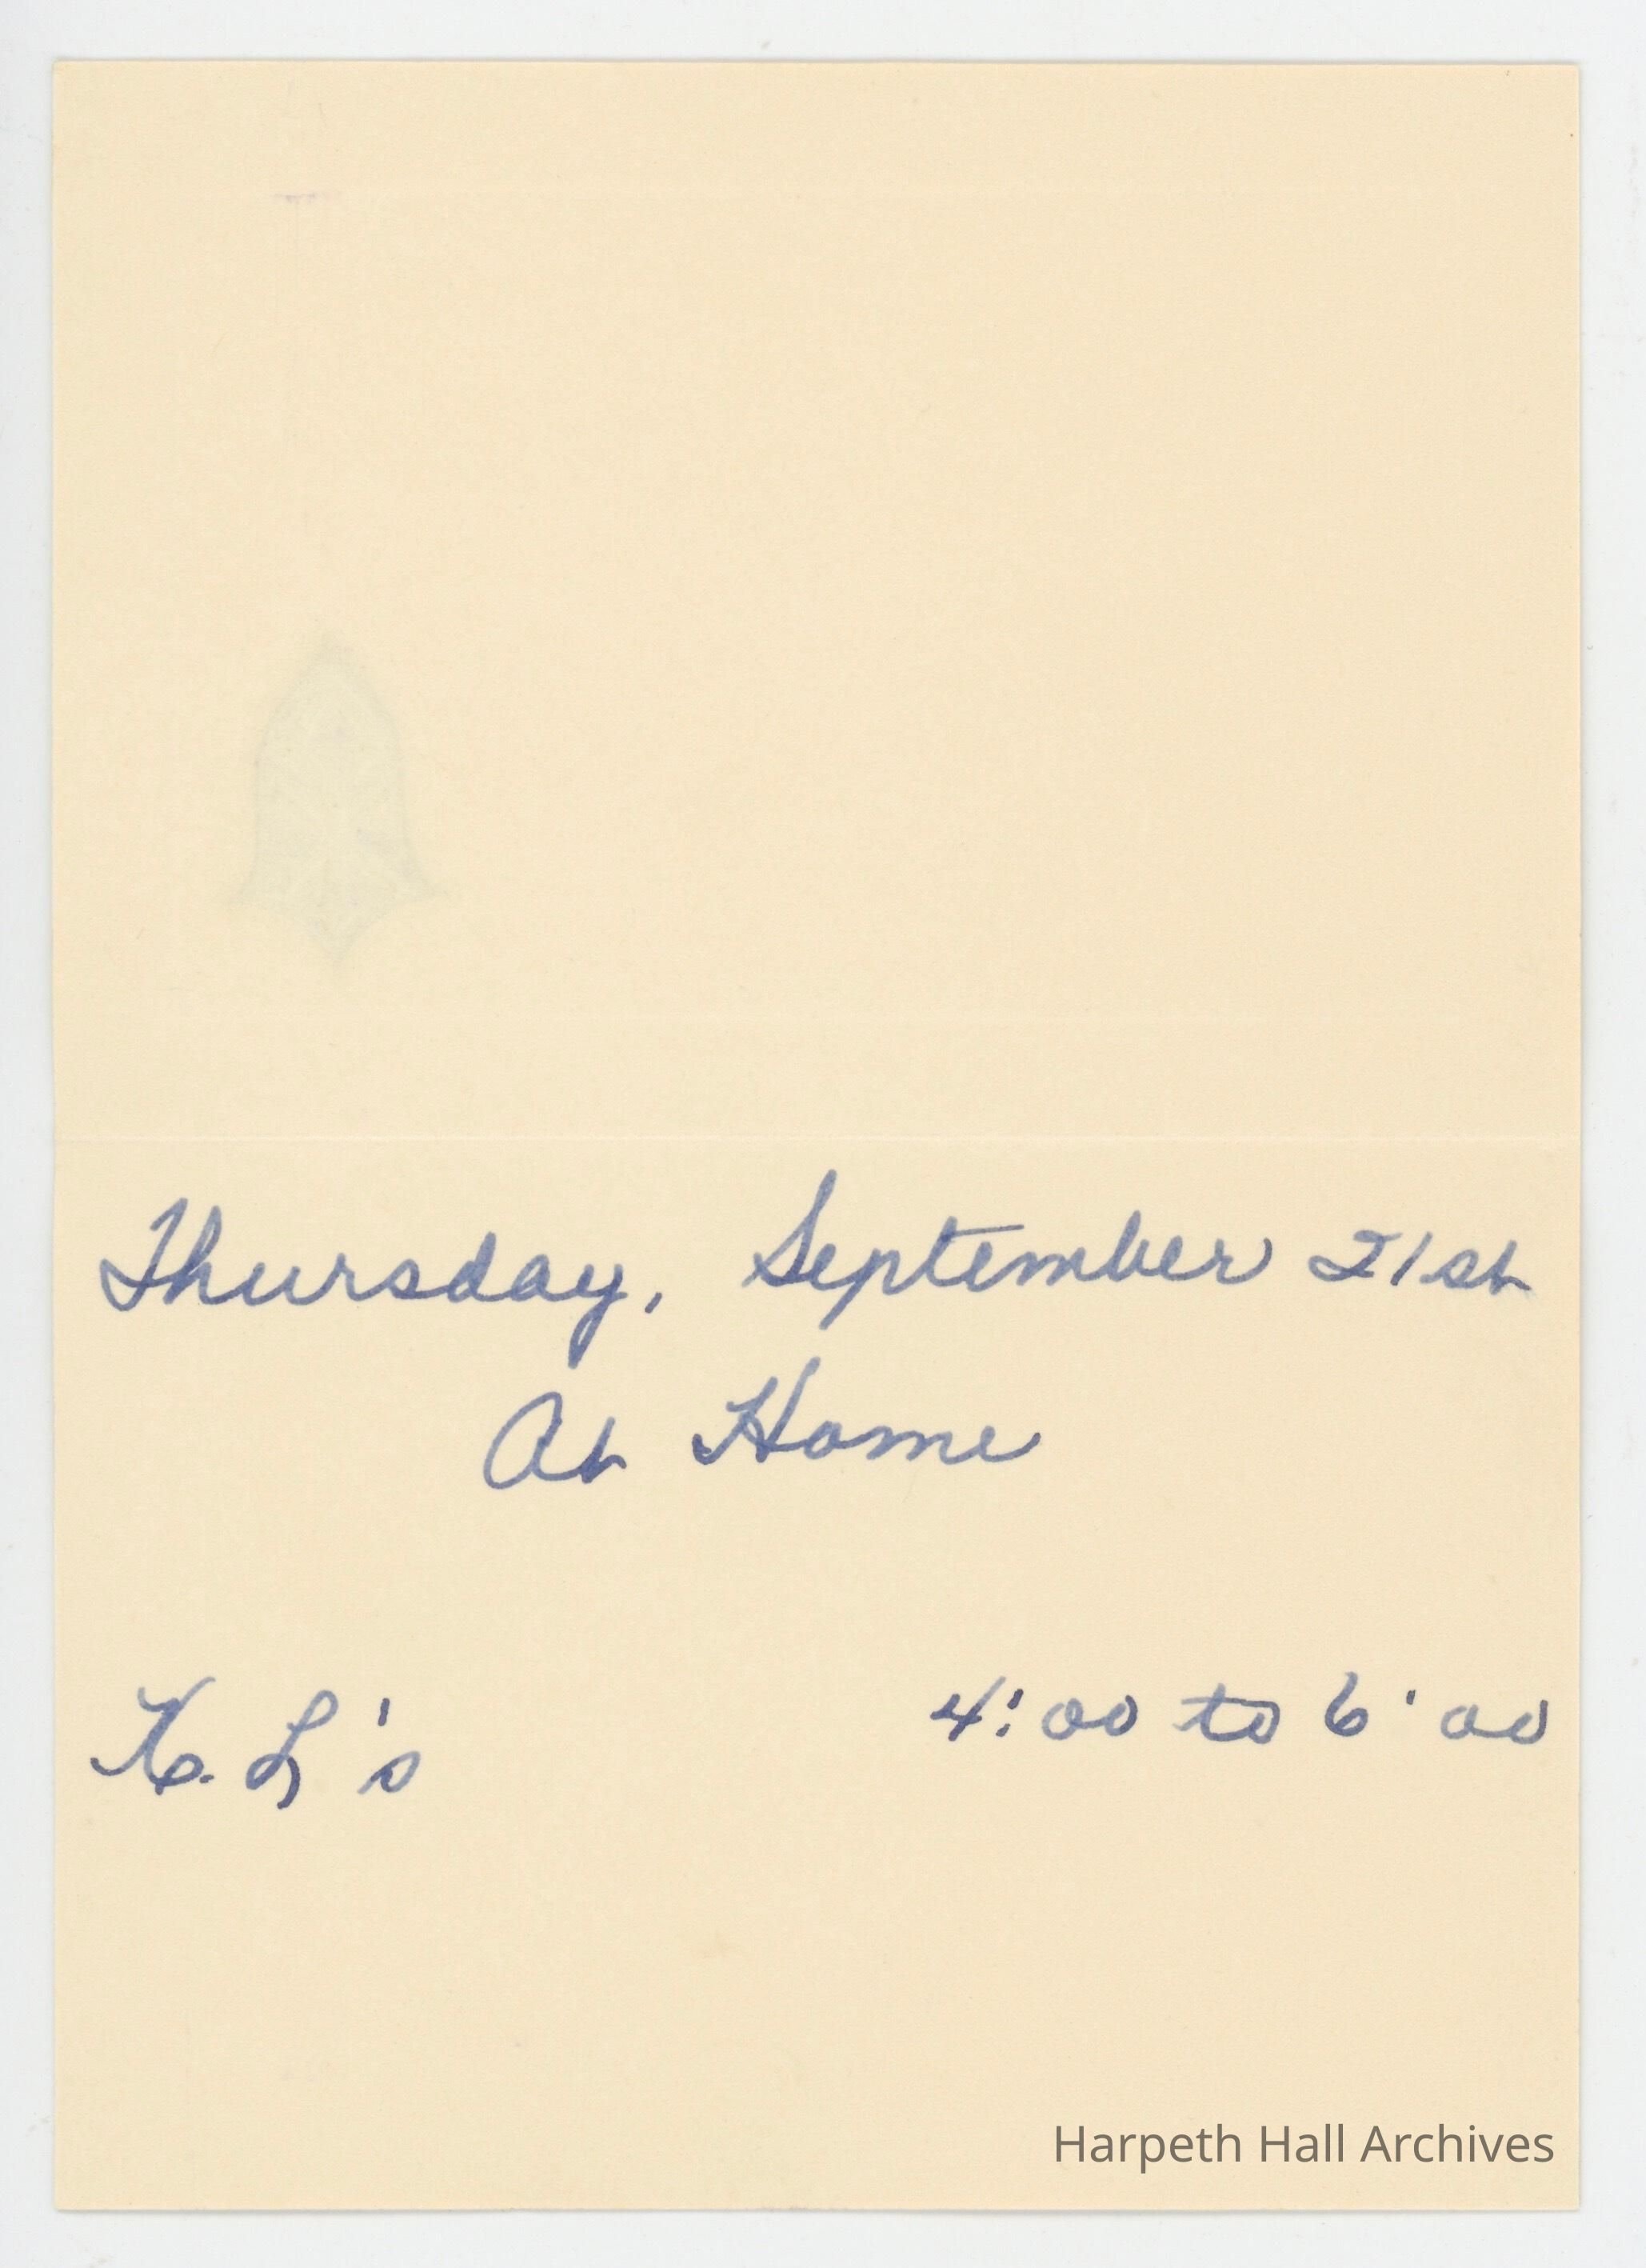 Thursday, September 21st
At Home
K. L's
4:00 to 6:00
Harpeth Hall Archives